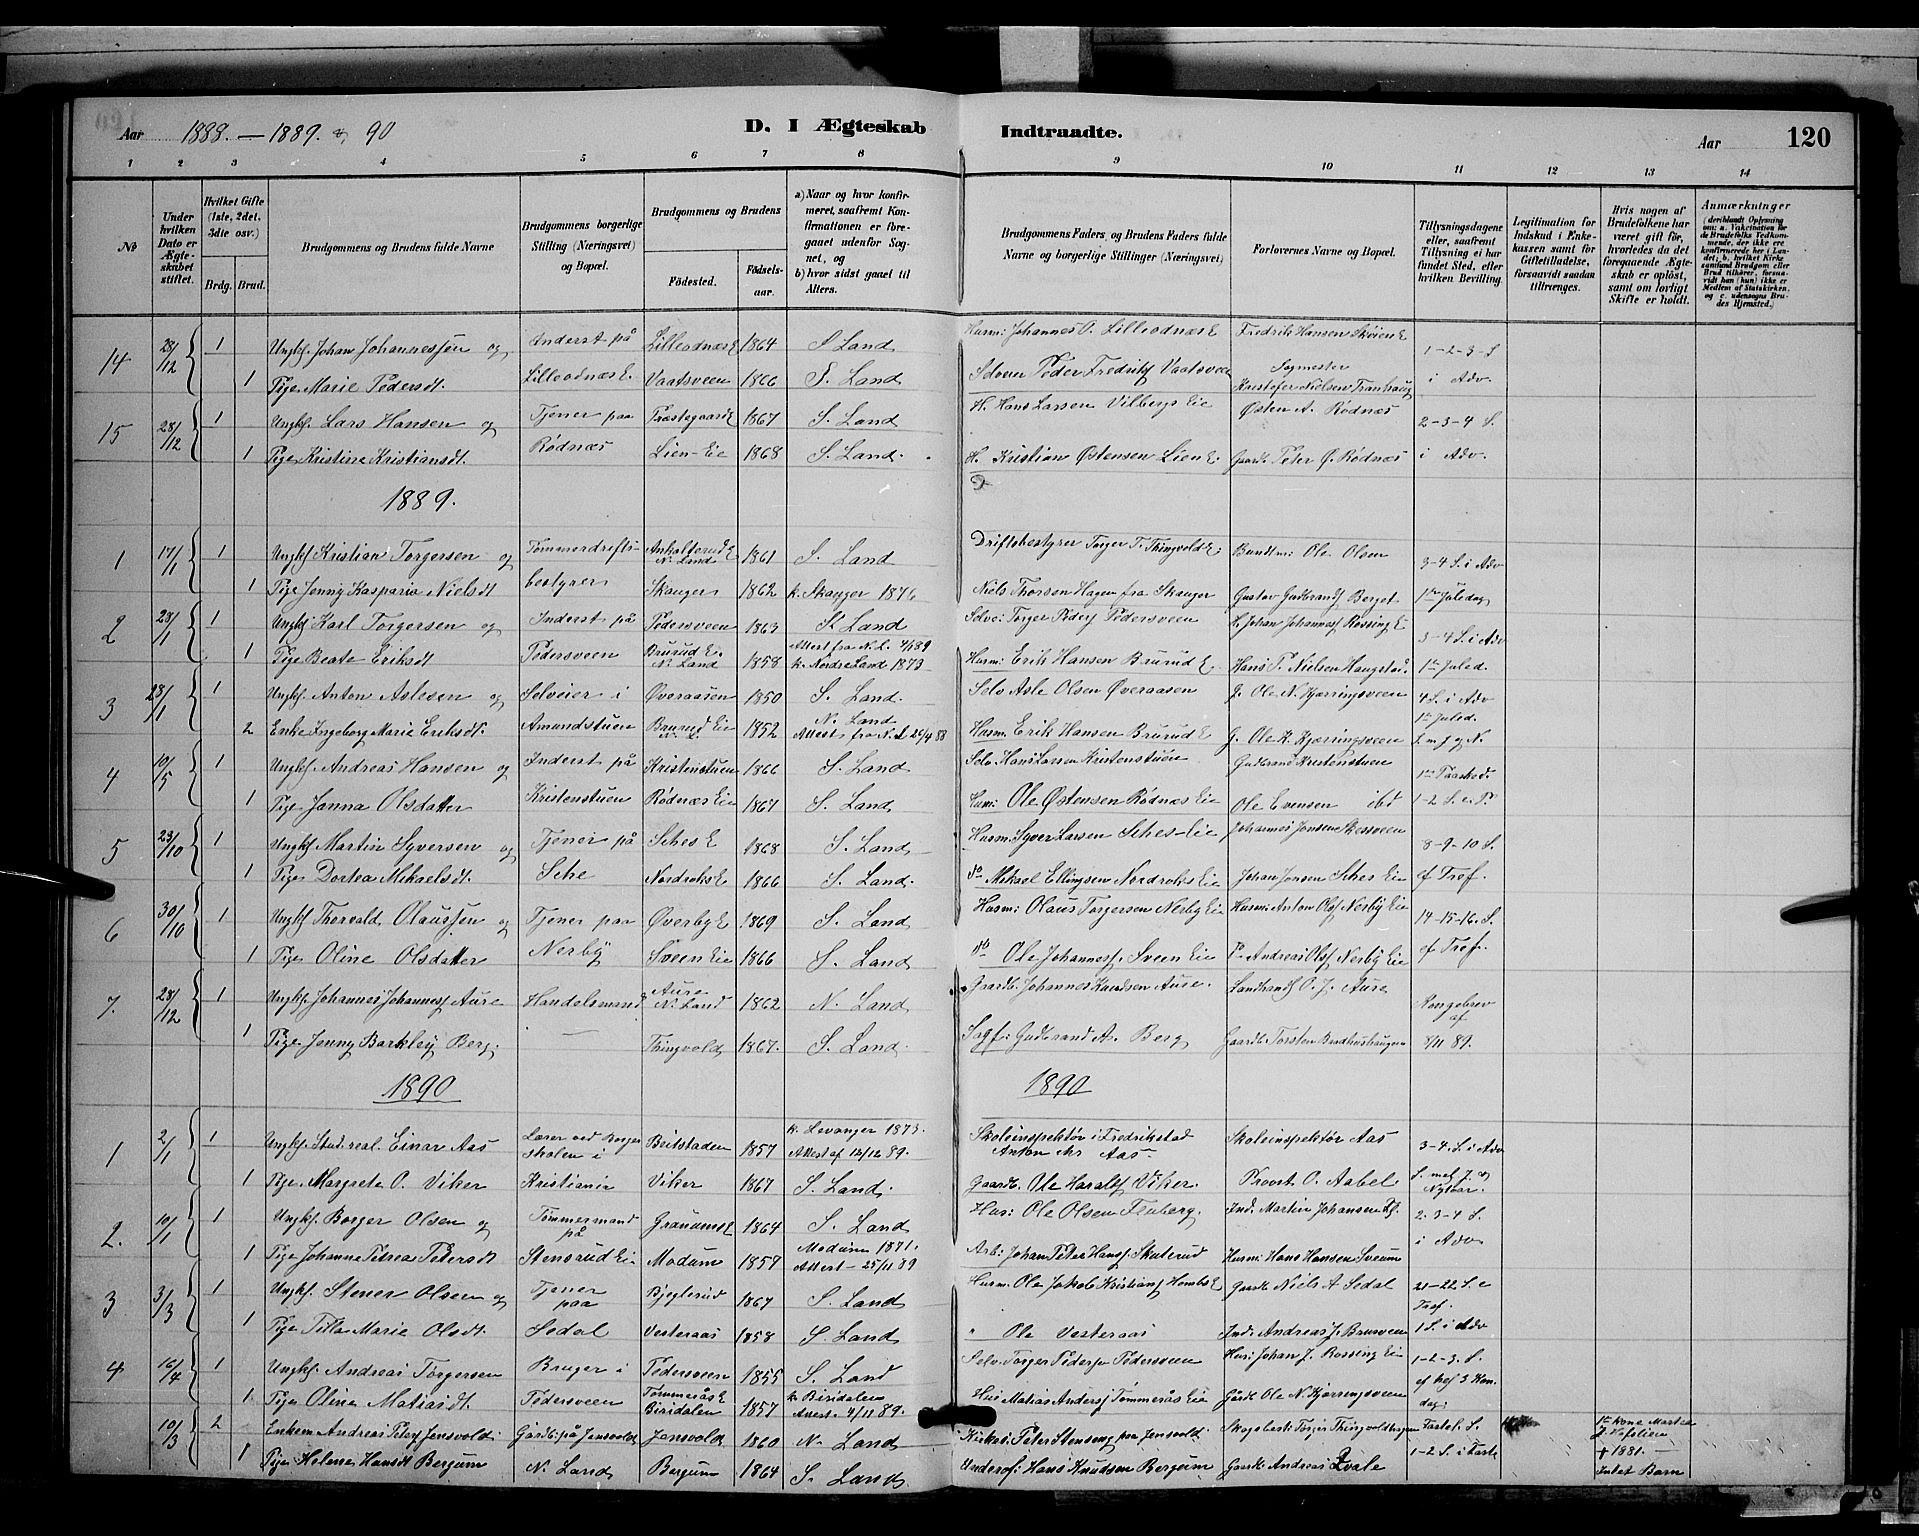 Aar 1888. — 1889. & 90
D. I Ægteskab Indtraadte.
Aar 120
1 2 3 4 5 6 7 8 9 10 11 12 13 14
No
Under hvilken Dato er Ægteskabet stiftet.
Hvilket Gifte (1ste, 2det, 3die osv.)
Brdg. Brud.
Brudgommens og Brudens fulde Navne
Brudgommens borgerlige Stilling (Næringsvei) og Bopæl.
Brudgommens og Brudens
Fødested.
Fødselsaar.
a) Naar og hvor konfirmeret, saafremt Konfirmationen er foregaaet udenfor Sognet, og
b) hvor sidst gaaet til Alters.
Brudgommens Faders og Brudens Faders fulde Navne og borgerlige Stillinger (Næringsvei)
Forlovernes Navne og Bopæl.
Tillysningsdagene eller, saafremt Tillysning ei har fundet Sted, efter hvilken Bevilling.
Legitimation for Indskud i Enkekassen samt for Giftetilladelse, forsaavidt saadan tiltrænges.
Hvis nogen af Brudefolkene har været gift før, hvorledes da det foregaaende Ægteskab er opløst, samt om lovligt Skifte er holdt.
Anmærkninger
14 28/12 1 Ungkf. Johan Johannessen og Inderst på Lilleodnæs E 1864 S. Land Husm: Johannes O. Lilleodnæs E Fredrik Hansen Skøien E 1-2-3-S
1 Pige Marie Pedersdt. Lilleodnæs E. Vaatsveen 1866 S. Land Selveier Peder Fredriks Vaatsveen Sagmester Kristofer Nielsen Tranhaug i Adv.
15 28/12 1 Ungkf. Lars Hansen og Tjener paa Præstegaards E 1867 S. Land H. Hans Larsen Vilbergs Eie Østen A. Rødnæs 2-3-4 S.
1 Pige Kristine Kristiansdt. Rødnæs Lien-Eie 1868 S. Land. H. Kristian Østensen Lien Ei Gaardb. Peter O. Rødnæs i Adv.
1889.
1 17/1 1 Ungkf Kristian Torgersen og Tømmerdrifts- Ankolterud E N. Land 1861 S. Land Driftsbestyrer Torger T. Thingvold E Bundtm: Ole Olsen 3-4 S. i Adv
1 Pige Jenny Kasparia Nielsdt bestyrer Skanger 1862 k. Skanger 1876 Niels Thorsen Hagen fra Skanger Gustav Gudbrands Berget 1ste Juledag
2 28/1 1 Ungkf Karl Torgersen og Inderst på Pedersveen 1863 S. Land Selve: Torger Peders Pedersveen H. Johan Johannes Rossing E 3-4 S. i Adv
1 Pige Beate Eriksdt Pedersveen Brurud E. N. Land 1858 Attest fra N. L. 4/1 89 k. Nordre Land 1873 Husm: Erik Hansen Brurud E. Hans P. Nielsen Haugstad. 1ste Juled.
3 28/1 1 Ungkf. Anton Aslesen og Selveier i Øveraasen 1850 S. Land. Selv Asle Olsen Øveraasen G. Ole N. Kjærringsveen 4 S. i Adv
2 Enke Ingeborg Marie Eriksdt. Amundstuen Brurud Eie N. L. 1852 N. Land Attest fra N. L 26/4 88 Husm. Erik Hansen Brurud E G. Ole K. Kjærringsveen 1ste Juled. S. m. J. og N.
4 10/5 1 Ungkf. Andreas Hansen og Inderst på Kristenstuen 1866 S. Land Selv. Hans Larsen Kristenstuen Gudbrand Kristenstuen 1ste Paaskd.
1 Pige Janna Olsdatter Kristenstuen Rødnæs Eie 1867 S. Land Husm: Ole Østensen Rødnæs Eie Ole Evensen ibd 1-2 S. e. P.
5 23/10 1 Ungkf Martin Syversen og Tjener på Sehes E 1868 S. Land Husm. Syver Larsen Sehes-Eie Johannes Jonsen Skesveen 8-9-10 S.
1 Pige Dortea Mikaelsdt. Sehe Nordroks E 1866 S. Land. do Mikael Ellingsen Nordroks Eie Johan Jonsen Sehes Eie ef Tref.
6 30/10 1 Ungkf Thorvald Olaussen og Tjener paa Øverby E 1869 S. Land. Husm: Olaus Torgersen Nerby Eie Husm: Anton Ols Nerby Eie 14-15-16. S.
1 Pige Oline Olsdatter Nerby Sveen Eie 1866 S. Land do Ole Johannes Sveen Eie P. Andreas Ols Nerby Eie ef Tref.
7. 28/12 1 Ungkf. Johannes Johannes Aure Handelsmand Aure N. Land 1862 N. Land Gaardb. Johannes Knudsen Aure. Landhand O. J. Aure Kongebrev af
1 Pige Jenny Barkley Berg. — Thingvold 1867. S. Land. Sagf: Gudbrand A. Berg Gaardb. Torsten Brudhushaugen 8/11 89.
1890 1890
1 2/1 1 Ungkf. Stud. real. Einar Aas Lærer ved Borgerskolen i Beitstaden 1857 k. Levanger 1873. Attest af 12/12 89. Skoleinspektør i Fredrikstad Anton Chr Aas Skoleinspektør Aas 3-4. S. i Adv
1 Pige Margrete O. Viker Kristiania Viker 1867 S. Land. Gaardb. Ole Haralds Viker. Provst O. Aabel S. mel J. og Nytaar.
2. 10/1 1 Ungkf. Borger Olsen og Tømmermand på Granums E 1864 S. Land Hus: Ole Olsen Fluberg. Ind. Martin Johansen 2-3-4 S.
1 Pige Johanne Petrea Petersdt Stensrud Ei Modum 1857 Modum 1871. Attest 25/11 89 Arb: Johan Peter Hans Skuterud Husm: Hans Hansen Sveum i Adv
3 3/3 1 Ungkf. Stener Olsen og Tjener paa Bjeglerud 1867 S. Land Husm: Ole Jakob Kristians Homb E Gaardb Niels A Sedal 21-22 S. e Tref.
1 Pige Tilla Marie Olsdt. Sedal Vesteraas 1858 S. Land " Ole Vesteraas Ind. Andreas J. Brusveen 1 S. i Adv
4 16/4 1 Ungkf. Andreas Torgersen Bruger i Pedersveen 1855 S. Land Selv. Torger Peders Pedersveen Hus: Johan J. Rossing Eie 1-2-3. S.
1. Pige Oline Matiasdt. Pedersveen Tømmerås E Biridalen 1857 k. Biridalen Attest 4/11 89. Hus Matias Anders Tømmerås Eie Gårdb Ole N. Kjærringsveen
10/3 2 Enkem Andreas Peters Jensvold Gårdb. på Jensvold Jensvold 1860 N. Land Kirkes: Peter Stenseng paa Jensvold Skogsbest: Torger Thingvoldhagen Fastel. S. 1ste Kone Martea
1 Pige Helene Hansdt Bergum N. Land Bergum 1864 S. Land Underof: Hans Knudsen Bergum Gaardb Andreas Qvale 1-2 S. i Faste † 1881. Intet Barn